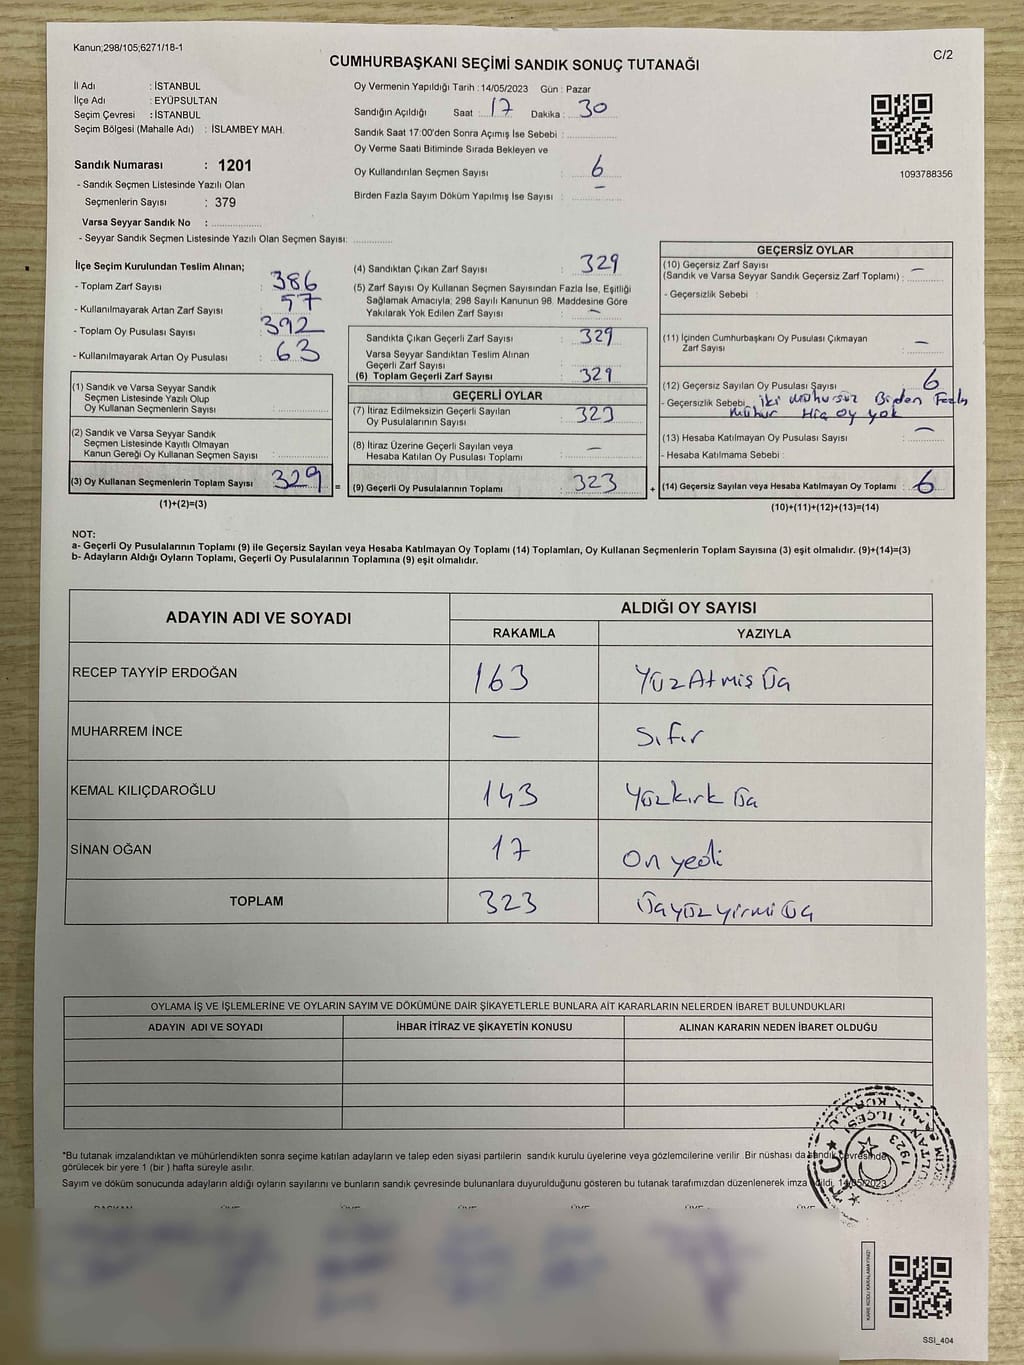 Kanun;298/105;6271/18-1
C/2
CUMHURBAŞKANI SEÇİMİ SANDIK SONUÇ TUTANAĞI
İl Adı : İSTANBUL
İlçe Adı : EYÜPSULTAN
Seçim Çevresi : İSTANBUL
Seçim Bölgesi (Mahalle Adı) : İSLAMBEY MAH.
Sandık Numarası : 1201
- Sandık Seçmen Listesinde Yazılı Olan
Seçmenlerin Sayısı : 379
Varsa Seyyar Sandık No :
- Seyyar Sandık Seçmen Listesinde Yazılı Olan Seçmen Sayısı:
Oy Vermenin Yapıldığı Tarih : 14/05/2023 Gün : Pazar
Sandığın Açıldığı Saat : 17 Dakika : 30
Sandık Saat 17:00'den Sonra Açımış İse Sebebi :
Oy Verme Saati Bitiminde Sırada Bekleyen ve
Oy Kullandırılan Seçmen Sayısı : 6
Birden Fazla Sayım Döküm Yapılmış İse Sayısı : –
1093788356
İlçe Seçim Kurulundan Teslim Alınan;
- Toplam Zarf Sayısı : 386
- Kullanılmayarak Artan Zarf Sayısı : 57
- Toplam Oy Pusulası Sayısı : 392
- Kullanılmayarak Artan Oy Pusulası : 63
(1) Sandık ve Varsa Seyyar Sandık
Seçmen Listesinde Yazılı Olup
Oy Kullanan Seçmenlerin Sayısı :
(2) Sandık ve Varsa Seyyar Sandık
Seçmen Listesinde Kayıtlı Olmayan
Kanun Gereği Oy Kullanan Seçmen Sayısı :
(3) Oy Kullanan Seçmenlerin Toplam Sayısı 329 =
(1)+(2)=(3)
(4) Sandıktan Çıkan Zarf Sayısı : 329
(5) Zarf Sayısı Oy Kullanan Seçmen Sayısından Fazla İse, Eşitliği
Sağlamak Amacıyla; 298 Sayılı Kanunun 98. Maddesine Göre
Yakılarak Yok Edilen Zarf Sayısı : –
Sandıkta Çıkan Geçerli Zarf Sayısı : 329
Varsa Seyyar Sandıktan Teslim Alınan
Geçerli Zarf Sayısı :
(6) Toplam Geçerli Zarf Sayısı : 329
GEÇERLİ OYLAR
(7) İtiraz Edilmeksizin Geçerli Sayılan
Oy Pusulalarının Sayısı : 323
(8) İtiraz Üzerine Geçerli Sayılan veya
Hesaba Katılan Oy Pusulası Toplamı : –
(9) Geçerli Oy Pusulalarının Toplamı : 323 +
GEÇERSİZ OYLAR
(10) Geçersiz Zarf Sayısı
(Sandık ve Varsa Seyyar Sandık Geçersiz Zarf Toplamı) : –
- Geçersizlik Sebebi :
(11) İçinden Cumhurbaşkanı Oy Pusulası Çıkmayan
Zarf Sayısı : –
(12) Geçersiz Sayılan Oy Pusulası Sayısı : 6
- Geçersizlik Sebebi : iki mühürsüz Birden Fazla
Mühür Hiç oy yok
(13) Hesaba Katılmayan Oy Pusulası Sayısı : –
- Hesaba Katılmama Sebebi :
(14) Geçersiz Sayılan veya Hesaba Katılmayan Oy Toplamı : 6
(10)+(11)+(12)+(13)=(14)
NOT:
a- Geçerli Oy Pusulalarının Toplamı (9) ile Geçersiz Sayılan veya Hesaba Katılmayan Oy Toplamı (14) Toplamları, Oy Kullanan Seçmenlerin Toplam Sayısına (3) eşit olmalıdır. (9)+(14)=(3)
b- Adayların Aldığı Oyların Toplamı, Geçerli Oy Pusulalarının Toplamına (9) eşit olmalıdır.
ADAYIN ADI VE SOYADI
ALDIĞI OY SAYISI
RAKAMLA YAZIYLA
RECEP TAYYİP ERDOĞAN 163 YüzAtmış Üç
MUHARREM İNCE – Sıfır
KEMAL KILIÇDAROĞLU 143 Yüzkırk Üç
SİNAN OĞAN 17 On yedi
TOPLAM 323 Üçyüzyirmi Üç
OYLAMA İŞ VE İŞLEMLERİNE VE OYLARIN SAYIM VE DÖKÜMÜNE DAİR ŞİKAYETLERLE BUNLARA AİT KARARLARIN NELERDEN İBARET BULUNDUKLARI
ADAYIN ADI VE SOYADI İHBAR İTİRAZ VE ŞİKAYETİN KONUSU ALINAN KARARIN NEDEN İBARET OLDUĞU
*Bu tutanak imzalandıktan ve mühürlendikten sonra seçime katılan adayların ve talep eden siyasi partilerin sandık kurulu üyelerine veya gözlemcilerine verilir. Bir nüshası da sandık çevresinde
görülecek bir yere 1 (bir ) hafta süreyle asılır.
Sayım ve döküm sonucunda adayların aldığı oyların sayılarını ve bunların sandık çevresinde bulunanlara duyurulduğunu gösteren bu tutanak tarafımızdan düzenlenerek imza edildi. 14/05/2023
T.C.
1923
BAŞKAN ÜYE ÜYE ÜYE ÜYE ÜYE ÜYE
KARE KODU KARALAMAYINIZ!
SSI_404